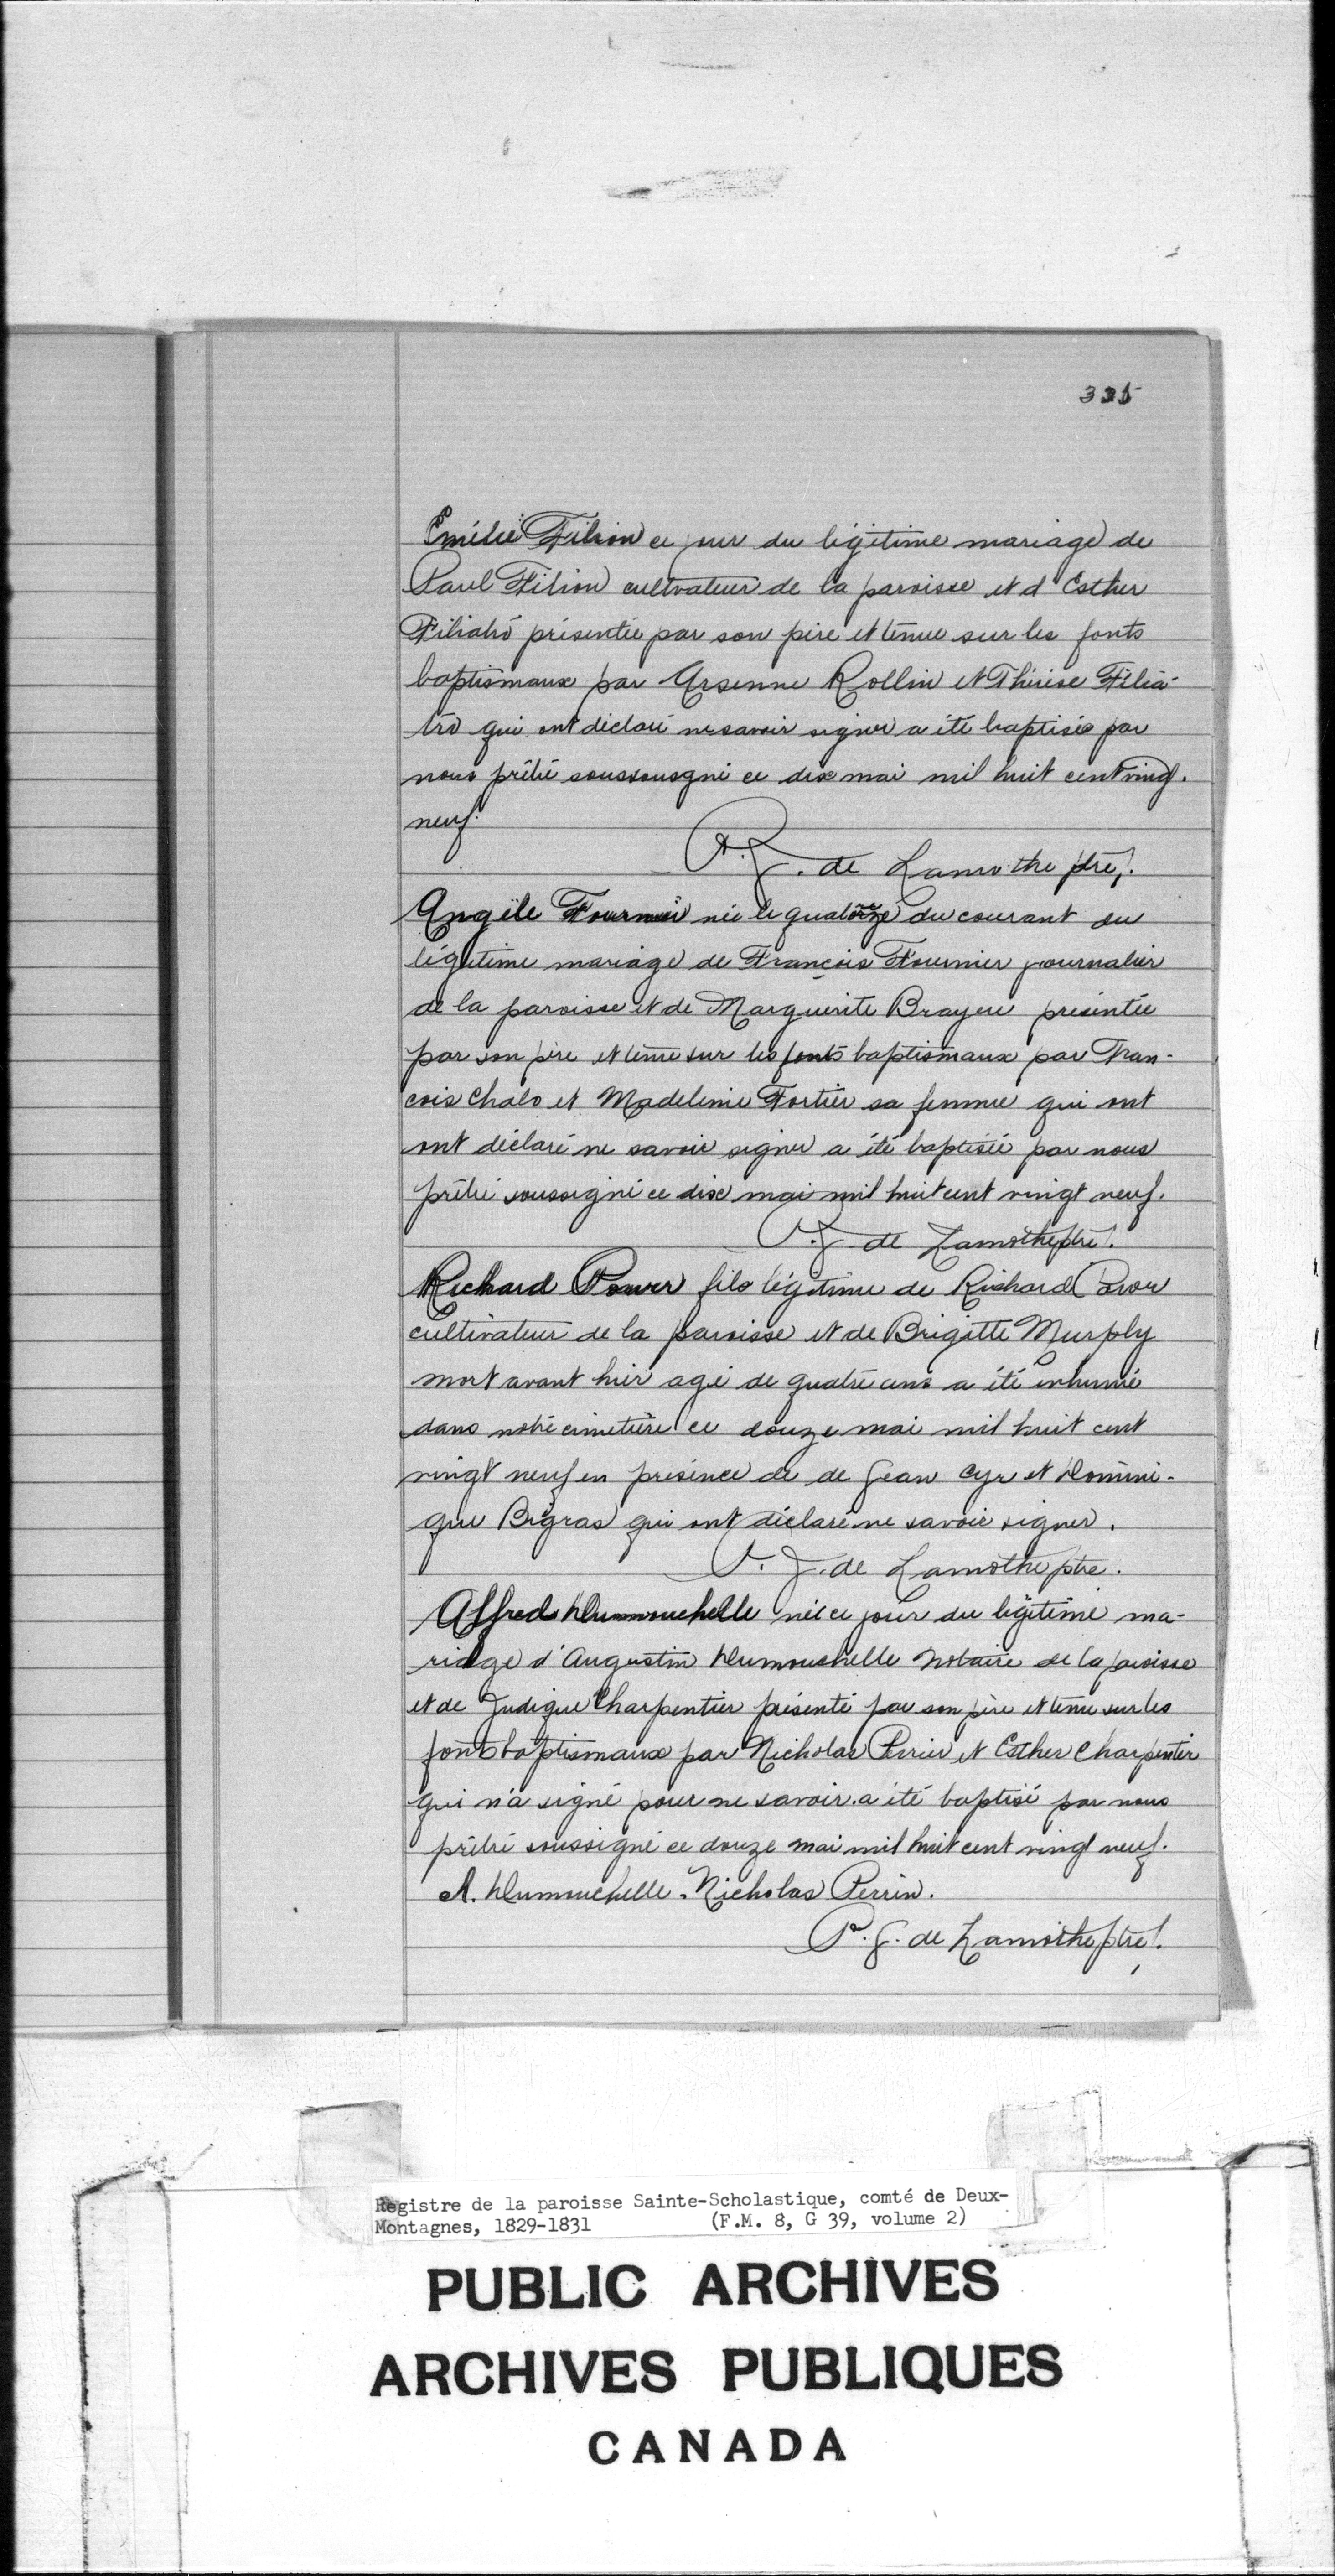 335
Emélie Filion ce jour du légitime mariage de
Paul Filion cultivateur de la paroisse et d'Esther
Filiatró présentée par son père et tenue sur les fonts
baptismaux par Arsenne Rollin et Thérèse Filia-
tro qui ont déclaré ne savoir signer a été baptisée par
nous prêtre soussousigné ce dix mai mil huit cent vingt.
neuf.
P. J. de Lamothe ptre.
Angèle Fournier née le quatorze du courant du
légitime mariage de François Fournier journalier
de la paroisse et de Marguerite Brayere présentée
par son père et tenue sur les fonts baptismaux par Fran-
cois Chalo et Madeleine Fortier sa femme qui ont
ont déclaré ne savoir signer a été baptisée par nous
prêtre soussigné ce dix mai mil huit cent vingt neuf.
P. J. de Lamothe ptre.
Richard Power fils légitime de Richard Power
cultivateur de la paroisse et de Brigitte Murphy
mort avant hier agé de quatre ans a été inhumé
dans notre cimetière ce douze mai mil huit cent
vingt neuf en présence de de Jean Cyr et Domini-
que Bigras qui ont déclaré ne savoir signer.
P. J. de Lamothe ptre.
Alfred Dumouchelle né ce jour du légitime ma-
riage d'Augustin Dumouchelle Notaire de la paroisse
et de Judique Charpentier présenté par son père et tenu sur les
fonts baptismaux par Nicholas Perrier et Esther Charpentier
qui n'a signé pour ne savoir. a été baptisé par nous
prêtre soussigné ce douze mai mil huit cent vingt neuf.
A. Dumouchelle. Nicholas Perrin.
P. J. de Lamothe ptre.
Registre de la paroisse Sainte-Scholastique, comté de Deux-
Montagnes, 1829-1831 (F.M. 8, G 39, volume 2)
PUBLIC ARCHIVES
ARCHIVES PUBLIQUES
CANADA